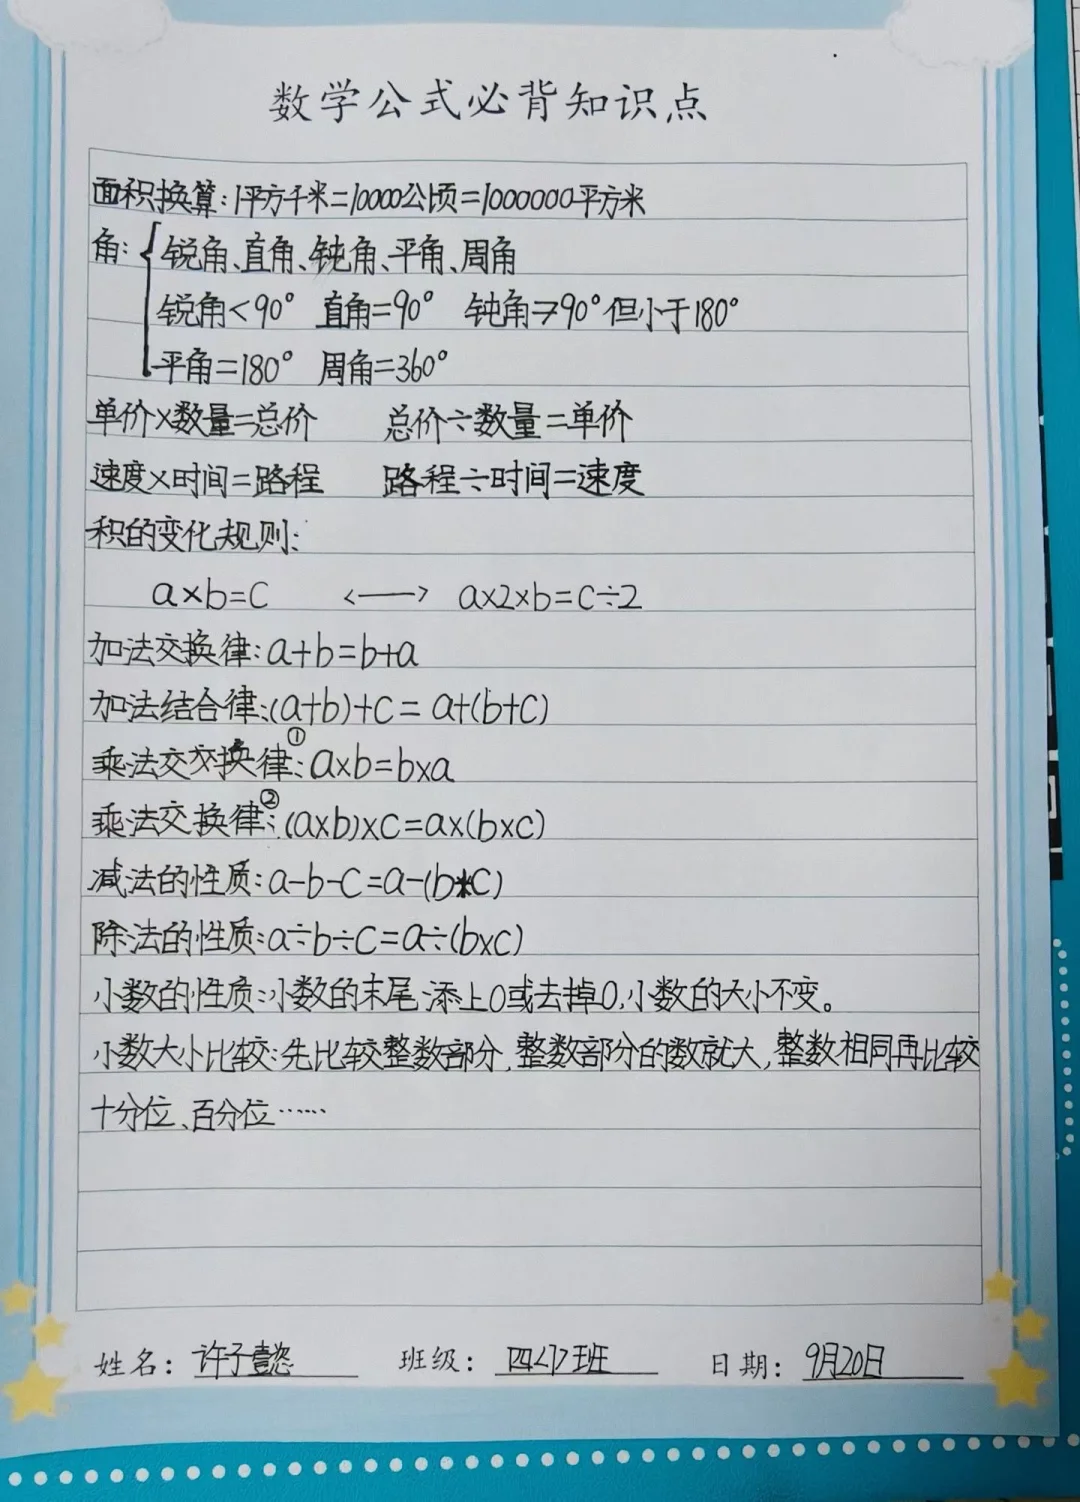 数学公式必背知识点
面积换算:1平方千米=10000公顷=1000000平方米
角:{锐角、直角、钝角、平角、周角
锐角<90° 直角=90° 钝角>90°但小于180°
平角=180° 周角=360°
单价×数量=总价 总价÷数量=单价
速度×时间=路程 路程÷时间=速度
积的变化规则:
a×b=C <——> a×2×b=C÷2
加法交换律:a+b=b+a
加法结合律:(a+b)+C=a+(b+C)
乘法交换律①:a×b=b×a
乘法交换律②:(a×b)×C=a×(b×C)
减法的性质:a-b-C=a-(b+C)
除法的性质:a÷b÷C=a÷(b×C)
小数的性质:小数的末尾添上0或去掉0,小数的大小不变。
小数大小比较:先比较整数部分,整数部分的数就大,整数相同再比较
十分位、百分位……
姓名:许子懿 班级:四<1>班 日期:9月20日